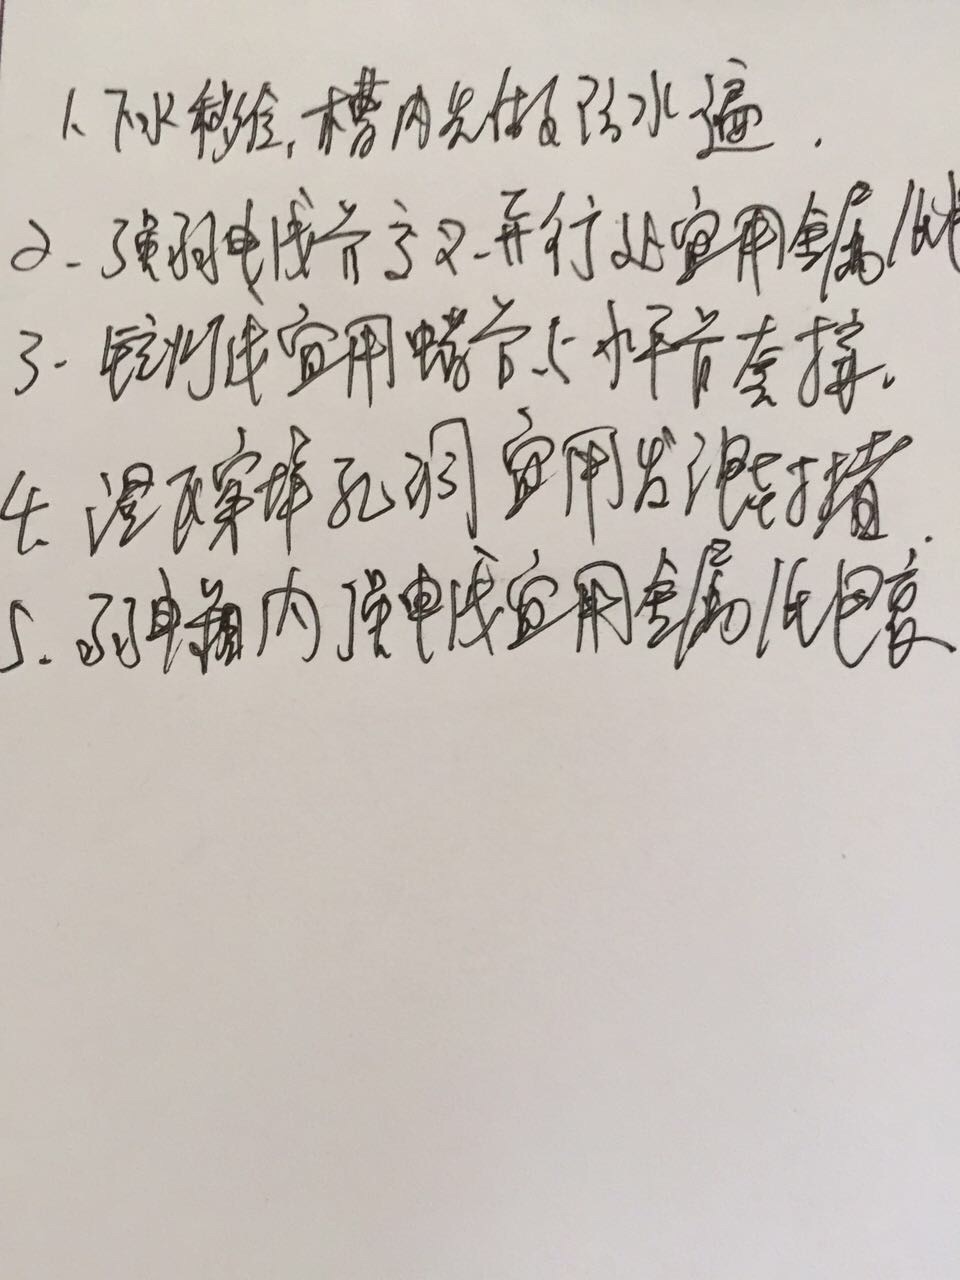 1. 下水移位,槽内先做防水遍.
2. 强弱电线管交叉.并行处宜用金属
3. 灯线宜用蜡管与水平管套接.
4. 混凝 孔洞宜用发泡封堵.
5. 弱电箱内强电线宜用金属